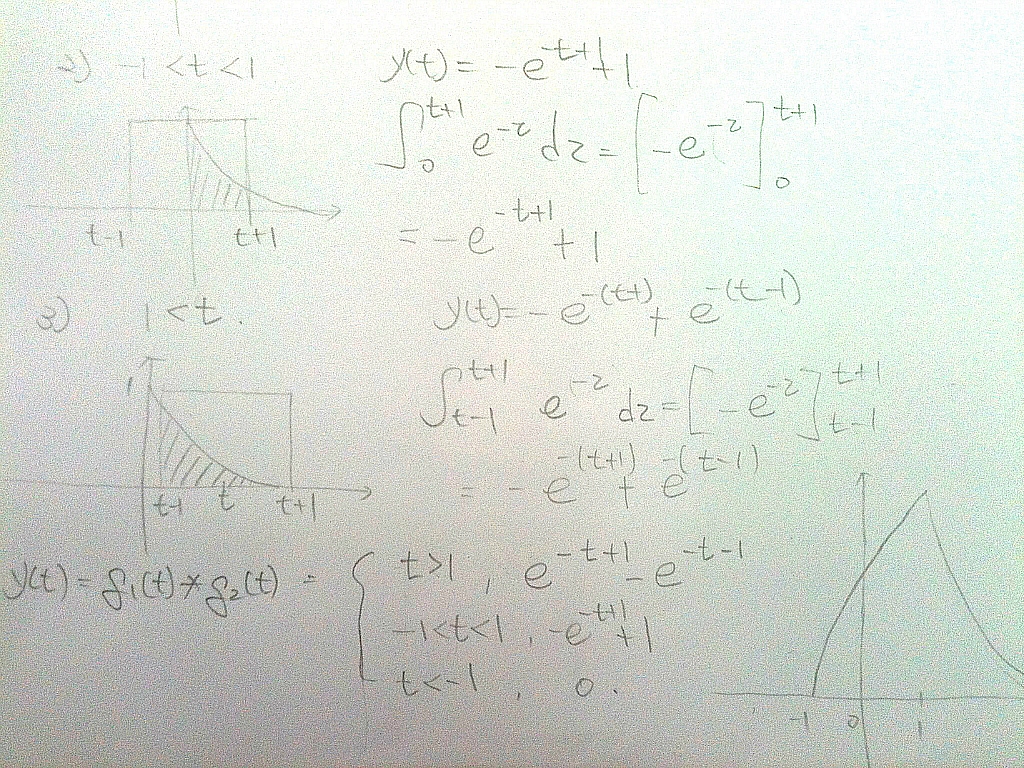 2) -1 < t < 1 y(t) = -e^{-t+1} + 1
∫_0^{t+1} e^{-z} dz = [-e^{-z}]_0^{t+1}
t-1 t+1
= -e^{-t+1} + 1
3) 1 < t. y(t) = -e^{-(t+1)} + e^{-(t-1)}
1
∫_{t-1}^{t+1} e^{-z} dz = [-e^{-z}]_{t-1}^{t+1}
= -e^{-(t+1)} + e^{-(t-1)}
t-1 t t+1
y(t) = g₁(t) * g₂(t) = { t>1, e^{-t+1} - e^{-t-1}
-1<t<1, -e^{-t+1} + 1
t<-1, 0.
-1 0 1